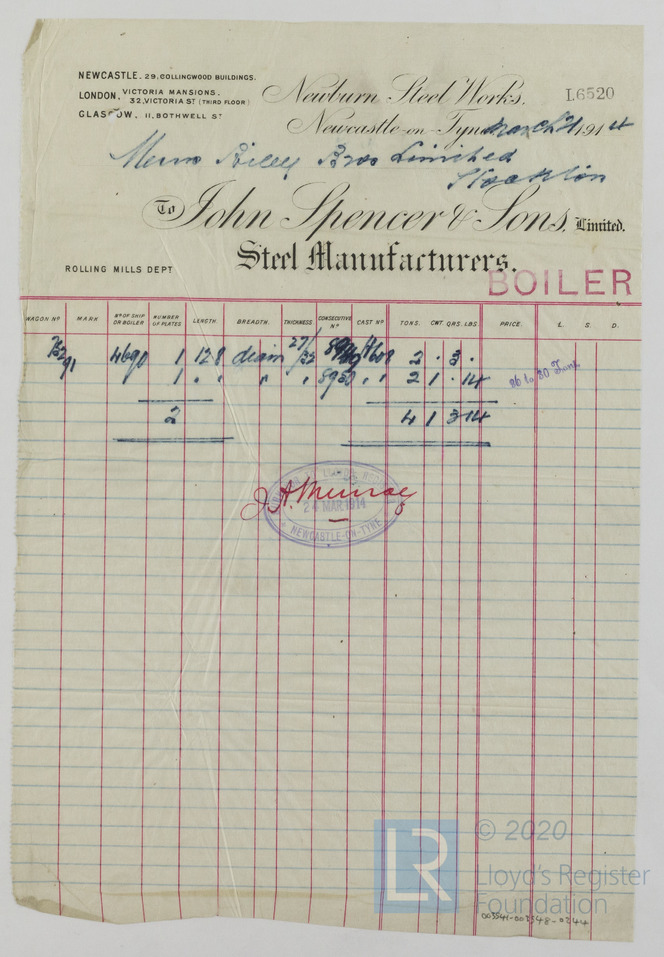 NEWCASTLE. 29, COLLINGWOOD BUILDINGS.
LONDON, VICTORIA MANSIONS,
32, VICTORIA ST (THIRD FLOOR)
GLASGOW, 11, BOTHWELL ST
Newburn Steel Works,
L6520
Newcastle-on-Tyne March 21 1914
Messrs Riley Bros Limited
Stockton
To John Spencer & Sons, Limited.
Steel Manufacturers.
ROLLING MILLS DEPT
BOILER
WAGON No MARK No OF SHIP OR BOILER NUMBER OF PLATES LENGTH. BREADTH. THICKNESS CONSECUTIVE No CAST No TONS. CWT. QRS. LBS. PRICE. £. S. D.
4690 1 128 diam 27/32 2 . 3 .
91 1 " " " " 8950 " " 2 1 . 14
26 to 30 Tons
2 4 1 3 14
J. A. Murray
24 MAR 1914
NEWCASTLE-ON-TYNE
LR
© 2020
Lloyd's Register
Foundation
003541-003548-0244